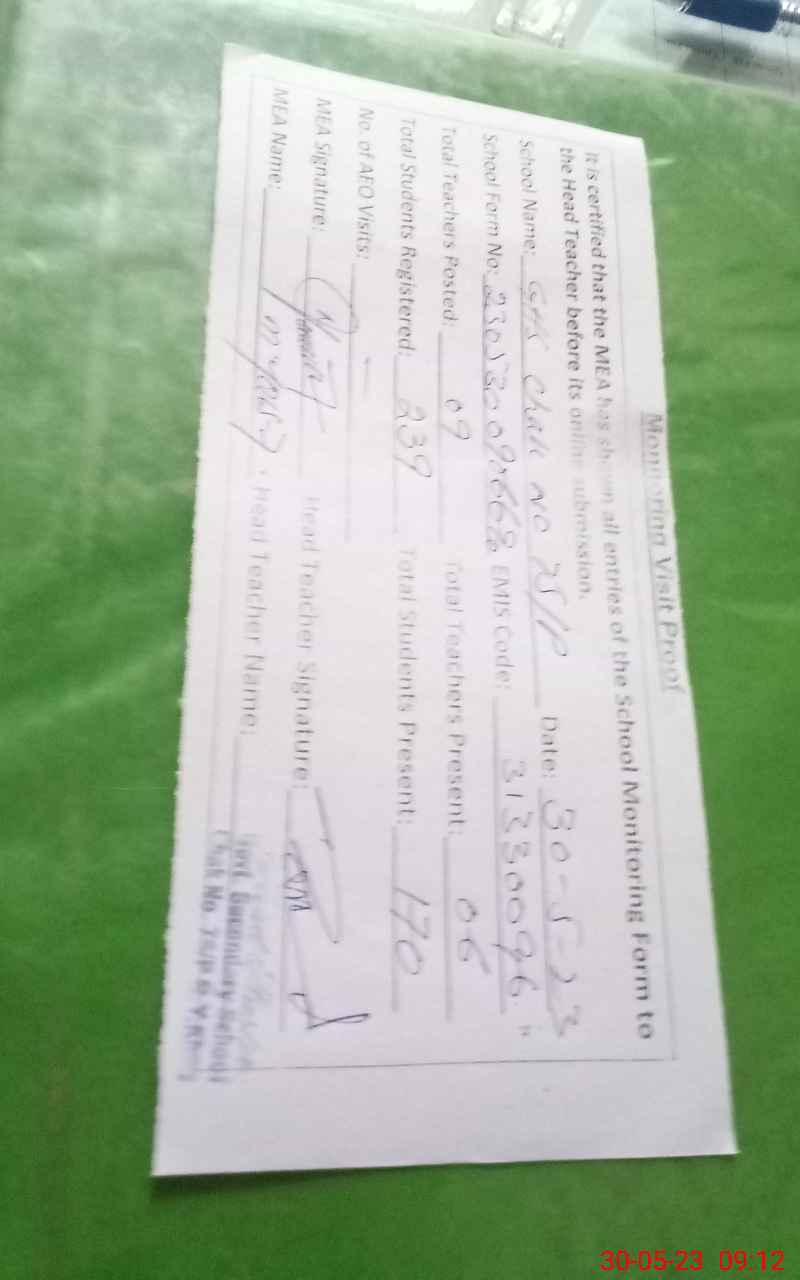 Monitoring Visit Proof
It is certified that the MEA has shown all entries of the School Monitoring Form to
the Head Teacher before its online submission.
School Name: GHS Chak No 75/P Date: 30-5-23
School Form No: EMIS Code: 31330096
Total Teachers Posted: 09 Total Teachers Present: 06
Total Students Registered: 239 Total Students Present: 170
No. of AEO Visits: —
MEA Signature: Head Teacher Signature:
MEA Name: Head Teacher Name:
Govt. Secondary School
Chak No. 75/P
30-05-23 09:12